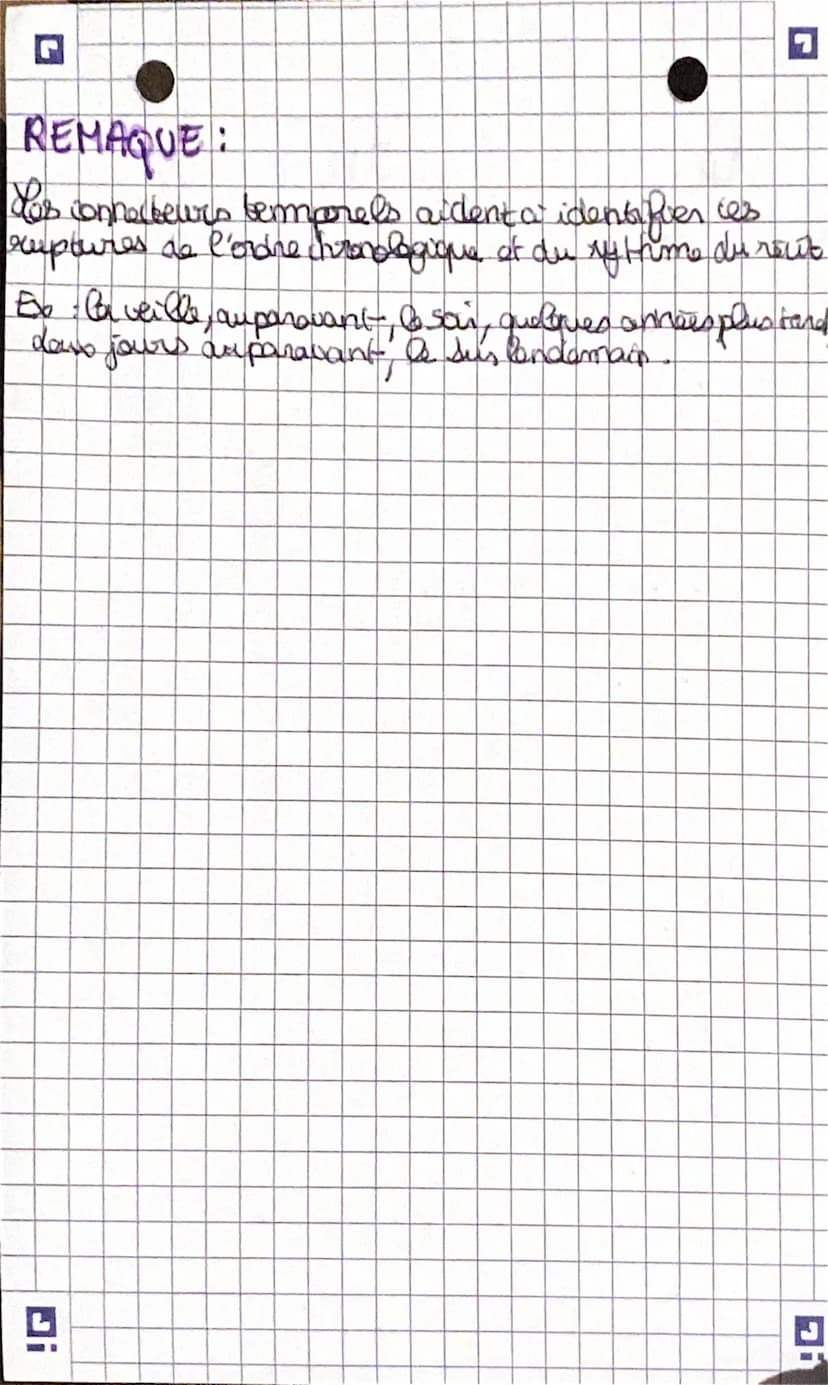 REMAQUE :
Les connecteurs temporels aident à identifier ces
ruptures de l'ordre chronologique et du rythme du récit
Ex : La veille, auparavant, le soir, quelques années plus tard
deux jours auparavant, le surlendemain.